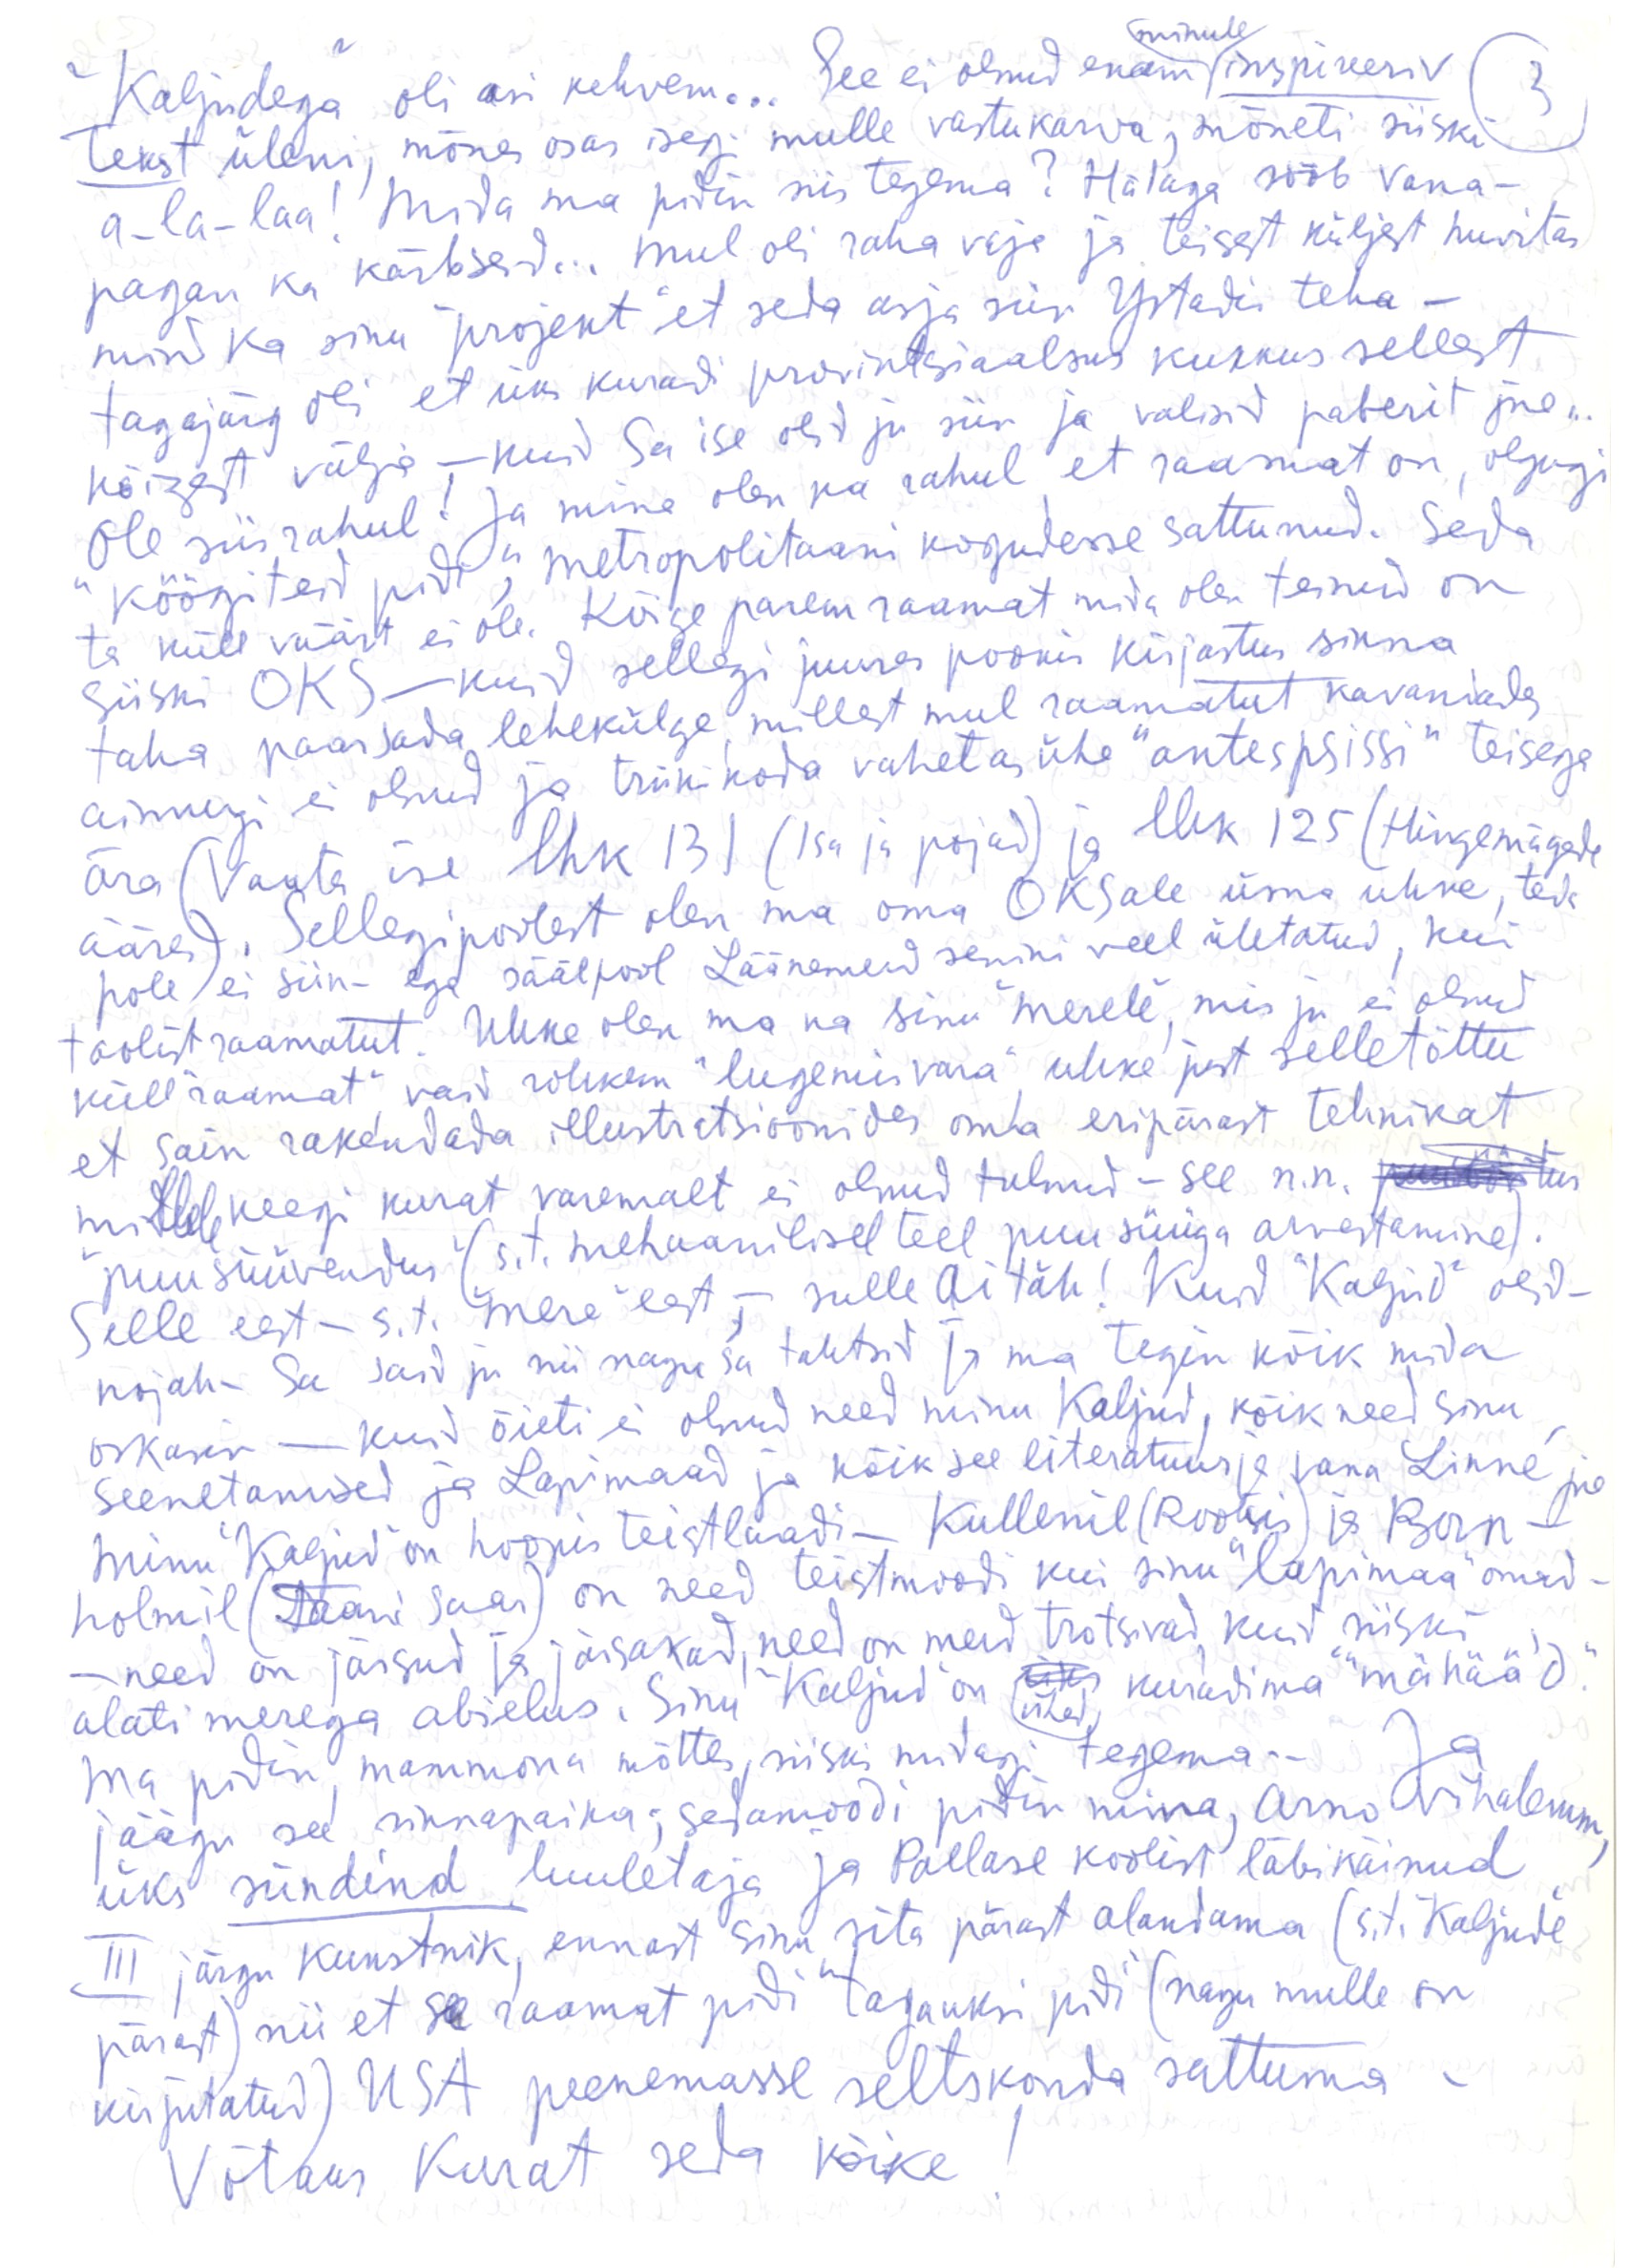 "Kaljudega" oli asi kehvem... See ei olnud enam minule inspireeriv
3
tekst üleni, mõnes osas isegi mulle vastukarva, mõneti siiski
a-la-laa! Mida ma pidin siis tegema? Hädaga sööb vana-
pagan ka kärbseid... Mul oli raha vaja ja teisest küljest huvitas
mind ka sinu "projekt" et seda asja siin Ystadis teha –
tagajärg oli et üks kuradi provintsiaalsus kukkus sellest
kõigest välja – kuid Sa ise olid ju siin ja valisid paberit jne...
Ole siis rahul! Ja mina olen ka rahul et raamat on, olgugi
"köögiteid pidi", Metropolitaani kogudesse sattunud. Seda
ta küll väärt ei ole. Kõige parem raamat mida olen teinud on
siiski OKS – kuid sellegi juures pookis kirjastus sinna
taha paarsada lehekülge, millest mul raamatut kavandades
aimugi ei olnud ja trükikoda vahetas ühe "antespsissi" teisega
ära (Vaata ise lhk 131 (Isa ja pojad) ja lhk 125 (Hingemägede
ääred). Sellegipoolest olen ma oma OKSale üsna uhke, teda
pole ei siin- ega säälpool Läänemerd senini veel ületatud, kui
taolist raamatut. Uhke olen ma ka sinu "merele", mis ju ei olnud
küll "raamat", vaid rohkem "lugemisvara", uhke just selletõttu
et sain rakendada illustratsioonides oma eripärast tehnikat
millele keegi kurat varemalt ei olnud tulnud – see n.n.
"puusüüvendus" (s.t. mehaanilisel teel puusüüga arvestamine).
Selle eest – s.t. "mere" eest, – sulle Aitäh! Kuid "Kaljud" olid –
nojah – Sa said ju nii nagu sa tahtsid ja ma tegin kõik mida
oskasin – kuid õieti ei olnud need minu Kaljud, kõik need sinu
seenetamised ja Lapimaad ja kõik see literatuur ja vana Linné jne
Minu "Kaljud" on hoopis teistlaadi – Kullenil (Rootsis) ja Born-
holmil (Taani saar) on need teistmoodi kui sinu "lapimaa" omad –
– need on järsud ja järsakad, need on merd trotsivad, kuid siiski
alati merega abielus. Sinu "Kaljud" on ühed kuradima "mähää'd".
Ma pidin, mammona mõttes, siiski midagi tegema.. Ja
jäägu see sinnapaika; sedamoodi pidin mina, Arno Vihalemm,
üks sündind luuletaja ja Pallase koolist läbikäinud
III järgu kunstnik, ennast sinu sita pärast alandama (s.t. "Kaljude"
pärast) nii et see raamat pidi "tagauksi pidi" (nagu mulle on
kirjutatud) USA peenemasse seltskonda sattuma –
Võtaks Kurat seda kõike!